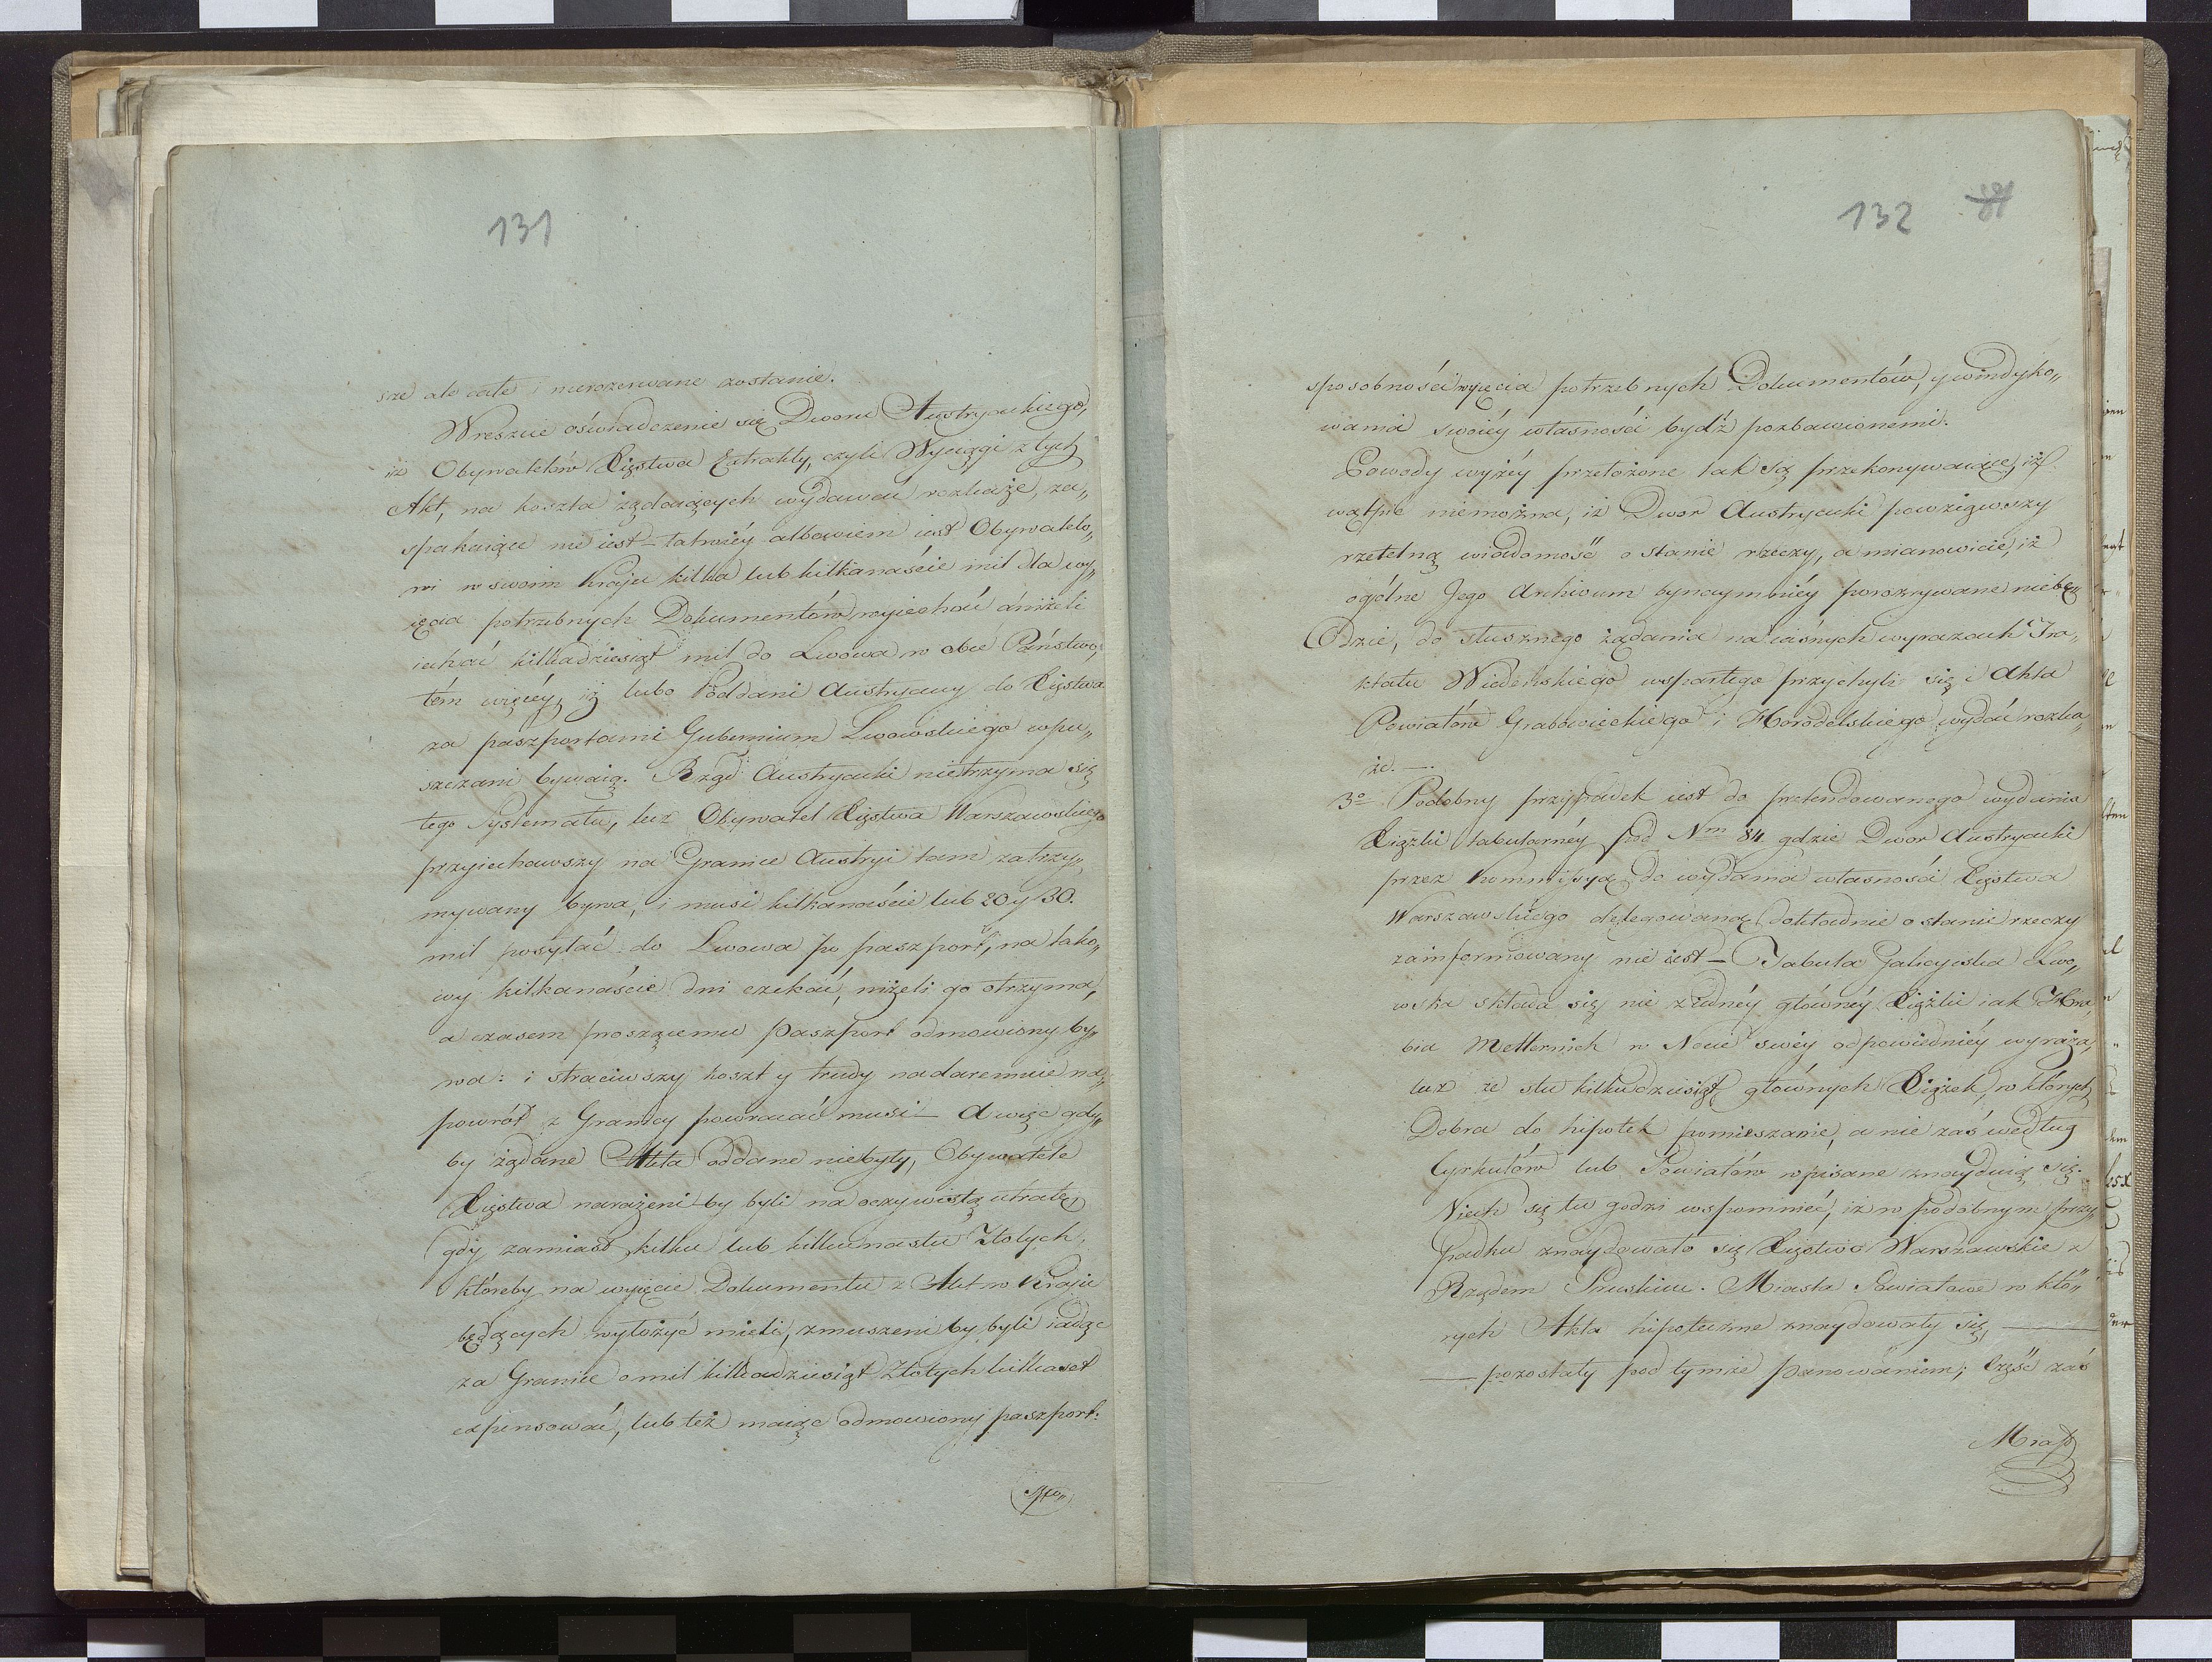 131
sze ale całe i nierozerwane zostanie.
Wreszcie oświadczenie się Dworu Austryackiego,
iż Obywatelów Xięstwa Extrakty, czyli Wyciągi z tych
Akt, na koszta żądaiących wydawać rozkaże, za„
spakaiące nie iest – łatwiéy albowiem iest Obywatelo„
wi w swoim Kraju kilka lub kilkanaście mil dla wy„
ięcia potrzebnych Dokumentów wyiechać aniżeli
iechać kilkadziesiąt mil do Lwowa w obce Państwo,
tém więcéy iż lubo Poddani Austryaccy do Xięstwa
za paszportami Gubernium Lwowskiego wpu„
szczani bywaią. Rząd Austryacki nietrzyma się
tego Systematu, lecz Obywatel Xięstwa Warszawskiego
przyiechawszy na Granice Austryi tam zatrzy„
mywany bywa, i musi kilkanaście lub 20 y 30.
mil posyłać do Lwowa po paszport, na tako„
wy kilkanaście dni czekać, niżeli go otrzyma,
a czasem proszącemu paszport odmowiony by„
wa: i straciwszy koszt y trudy nadaremnie na„
powrót z Granicy powracać musi – A więc gdy„
by żądane Akta oddane niebyły, Obywatele
Xięstwa narażeni by byli na oczywistą utratę
gdy zamiast kilku lub kilkunastu Złotych,
któreby na wyięcie Dokumentu z Akt w Kraju
będących wyłożyć mieli, zmuszeni by byli iadąc
za Granicę o mil kilkadziesiąt Złotych kilkaset
expensować, lub też maiąc odmowiony paszport:
spo„
132
sposobności wyięcia potrzebnych Dokumentów, y windyko„
wania swoiéy własności bydź pozbawionemi.
Powody wyżéy przełożone tak są przekonywaiące, iż
wątpić niemożna, iż Dwor Austryacki powziąwszy
rzetelną wiadomość o stanie rzeczy, a mianowicie, iż
ogólne Jego Archivum bynaymniéy porozrywane niebę„
dzie, do słusznego żądania na iasnych wyrazach Tra„
ktatu Wiedeńskiego wspartego przychyli się i Akta
Powiatów Grabowieckiego i Horodelskiego wydać rozka„
że. —.
3º Podobny przypadek iest do pretendowanego wydania
Xiążki tabularnéy pod Nm 84 gdzie Dwor Austryacki
przez Kommissyą do wydania własności Xięstwa
Warszawskiego delegowaną dokładnie o stanie rzeczy
zainformowany nie iest – Tabula Galicyiska Lwo„
wska składa się nie z iednéy głównéy Xiążki iak Hra„
bia Metternich w Nocie swéy odpowiedniéy wyraża,
lecz ze stu kilkudziesiąt głównych Xiążek, w których
Dobra do hipotek pomieszanie, a nie zaś według
Cyrkułów lub Powiatów wpisane znayduią się.
Niech się tu godzi wspomnieć, iż w podobnym przy„
padku znaydowało się Xięstwo Warszawskie z
Rządem Pruskim. Miasta Powiatowe w któ„
rych Akta hipoteczne znaydowały się —
— pozostały pod tymże panowaniem; Część zaś
Miast